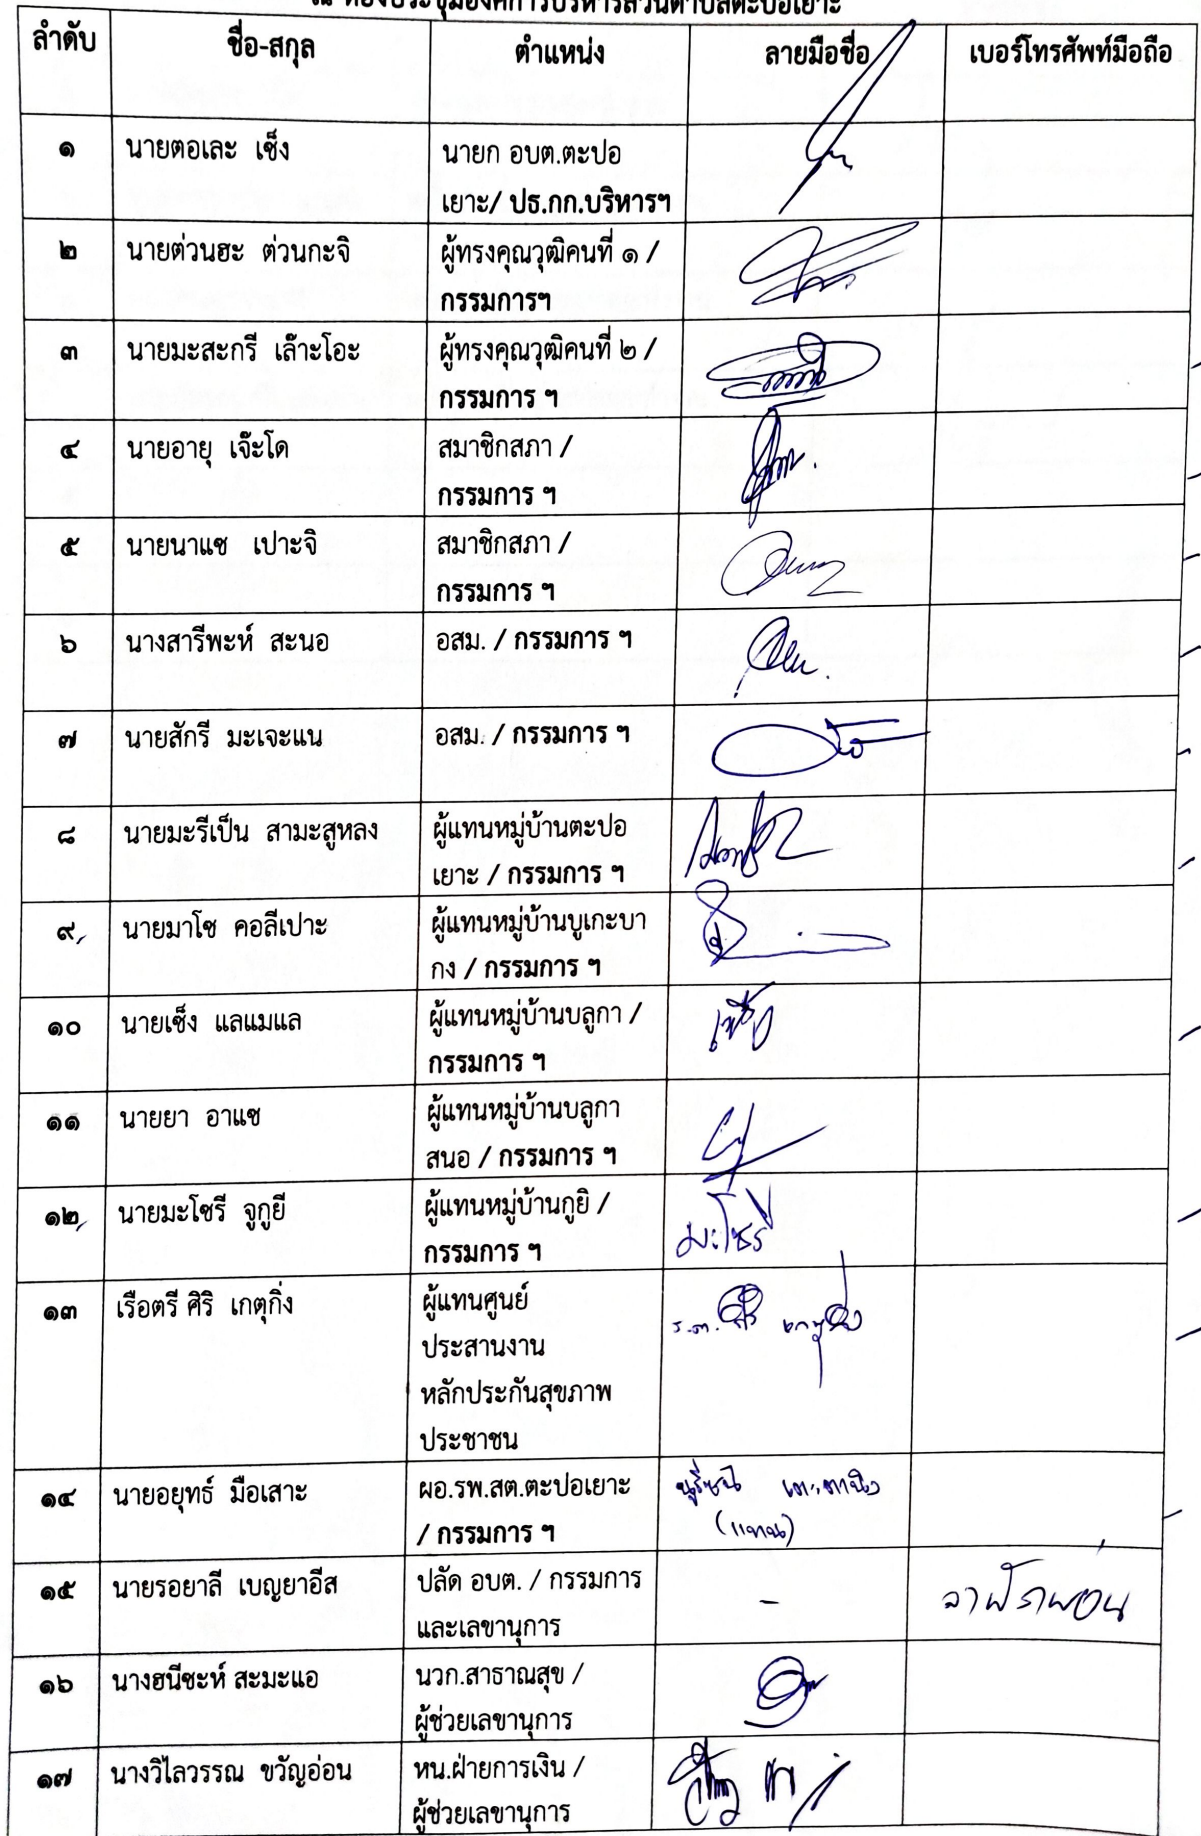 ณ ห้องประชุมองค์การบริหารส่วนตำบลตะปอเยาะ
ลำดับ ชื่อ-สกุล ตำแหน่ง ลายมือชื่อ เบอร์โทรศัพท์มือถือ
๑ นายตอเละ เซ็ง นายก อบต.ตะปอ
เยาะ/ ปธ.กก.บริหารฯ
๒ นายต่วนฮะ ต่วนกะจิ ผู้ทรงคุณวุฒิคนที่ ๑ /
กรรมการฯ
๓ นายมะสะกรี เล๊าะโอะ ผู้ทรงคุณวุฒิคนที่ ๒ /
กรรมการ ฯ
๔ นายอายุ เจ๊ะโด สมาชิกสภา /
กรรมการ ฯ
๕ นายนาแซ เปาะจิ สมาชิกสภา /
กรรมการ ฯ
๖ นางสารีพะห์ สะนอ อสม. / กรรมการ ฯ
๗ นายสักรี มะเจะแน อสม. / กรรมการ ฯ
๘ นายมะรีเป็น สามะสูหลง ผู้แทนหมู่บ้านตะปอ
เยาะ / กรรมการ ฯ
๙ นายมาโซ คอลีเปาะ ผู้แทนหมู่บ้านบูเกะบา
กง / กรรมการ ฯ
๑๐ นายเซ็ง แลแมแล ผู้แทนหมู่บ้านบลูกา /
กรรมการ ฯ
๑๑ นายยา อาแซ ผู้แทนหมู่บ้านบลูกา
สนอ / กรรมการ ฯ
๑๒ นายมะโซรี จูกูยี ผู้แทนหมู่บ้านกูยิ / มะโซรี
กรรมการ ฯ
๑๓ เรือตรี ศิริ เกตุกิ่ง ผู้แทนศูนย์ ร.ต. ศิริ เกตุกิ่ง
ประสานงาน
หลักประกันสุขภาพ
ประชาชน
๑๔ นายอยุทธ์ มือเสาะ ผอ.รพ.สต.ตะปอเยาะ
/ กรรมการ ฯ (แทน)
๑๕ นายรอยาลี เบญยาอีส ปลัด อบต. / กรรมการ - ลาพักผ่อน
และเลขานุการ
๑๖ นางฮนีซะห์ สะมะแอ นวก.สาธาณสุข /
ผู้ช่วยเลขานุการ
๑๗ นางวิไลวรรณ ขวัญอ่อน หน.ฝ่ายการเงิน /
ผู้ช่วยเลขานุการ